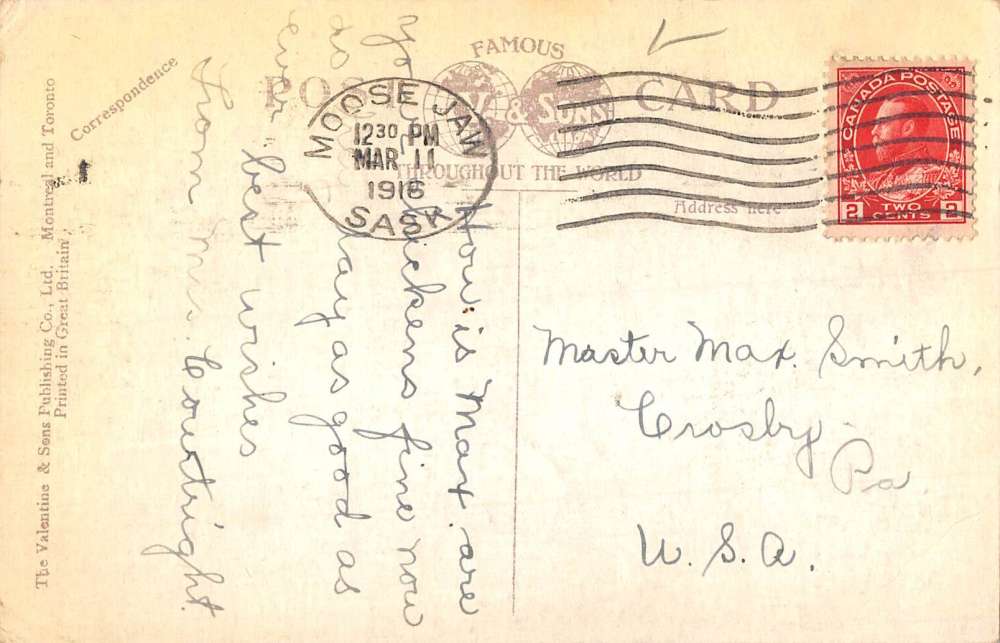 FAMOUS
POST CARD
V. & SONS
THROUGHOUT THE WORLD
MOOSE JAW
12 30 PM
MAR 11
1916
SASK
CANADA POSTAGE
2 TWO CENTS 2
Correspondence
Address here
How is Max. are
your chickens fine now
lay as good as
ever. best wishes
from Mrs. Courtright.
Master Max. Smith,
Crosby
Pa
U. S. A.
The Valentine & Sons Publishing Co., Ltd. Montreal and Toronto
Printed in Great Britain